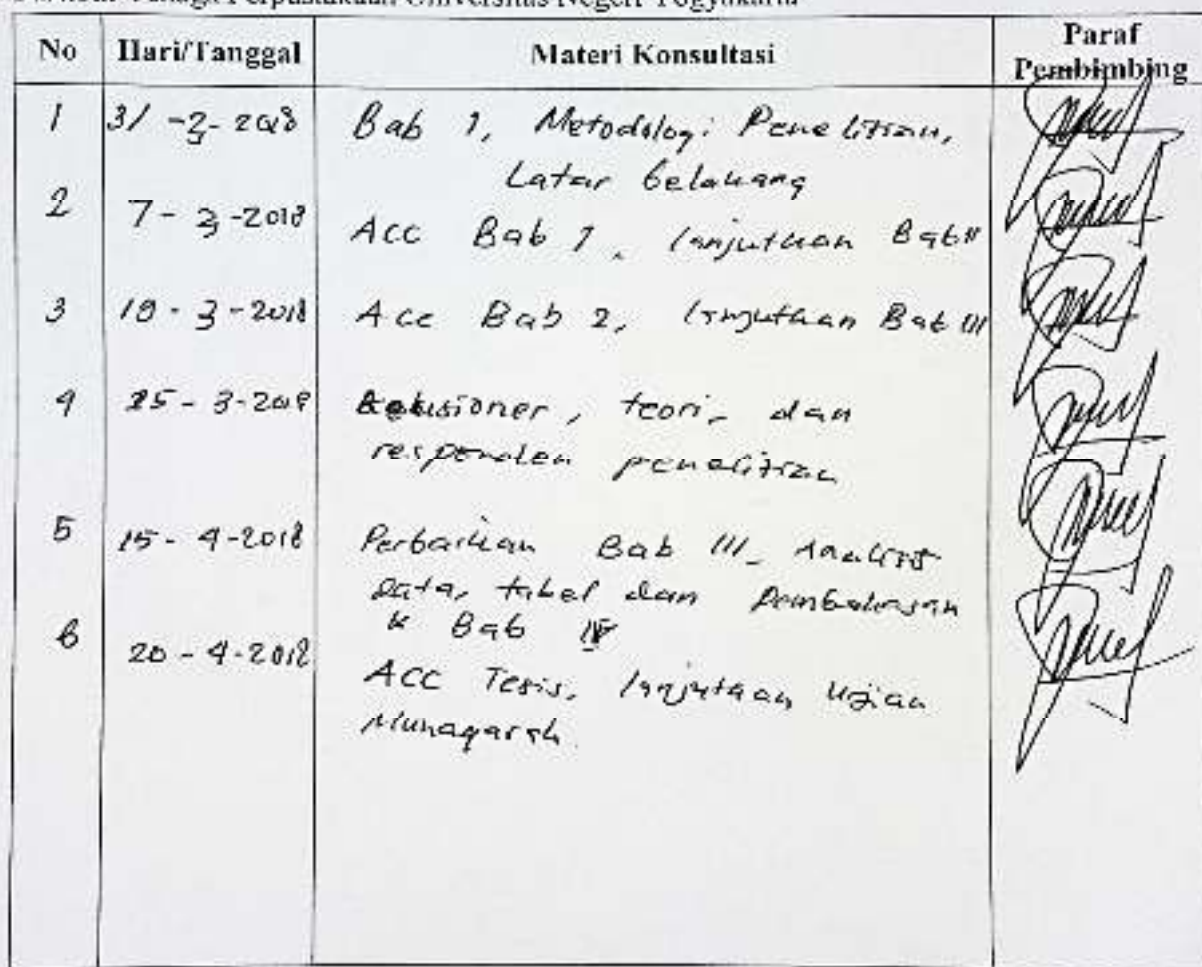 Tenaga Perpustakaan Universitas Negeri Yogyakarta
No Hari/Tanggal Materi Konsultasi Paraf Pembimbing
1 31 -3- 2018 Bab 1, Metodologi Penelitian,
Latar belakang
2 7 - 3 -2018 Acc Bab 1, lanjutkan Bab II
3 - 3 -2018 Acc Bab 2, lanjutkan Bab III
4 25 - 3 -2018 kuisioner, teori, dan
responden penelitian
5 15 - 4 -2018 Perbaikan Bab III, Analisis
Data, tabel dan Pembahasan
Bab IV
6 20 - 4 -2018 ACC Tesis, lanjutkan Ujian
Munaqasah.